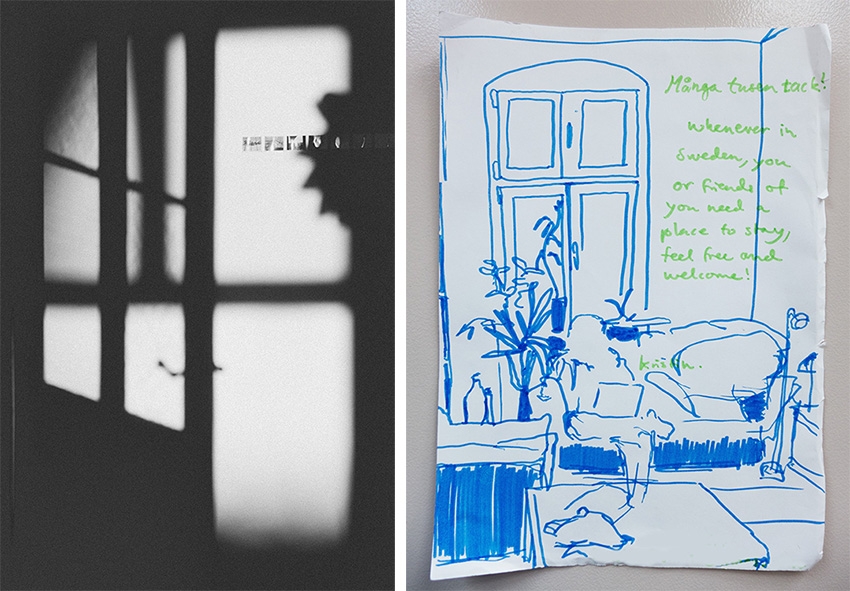 Många tusen tack!
whenever in
sweden, you
or friends of
you need a
place to stay,
feel free and
welcome!
Kristin.